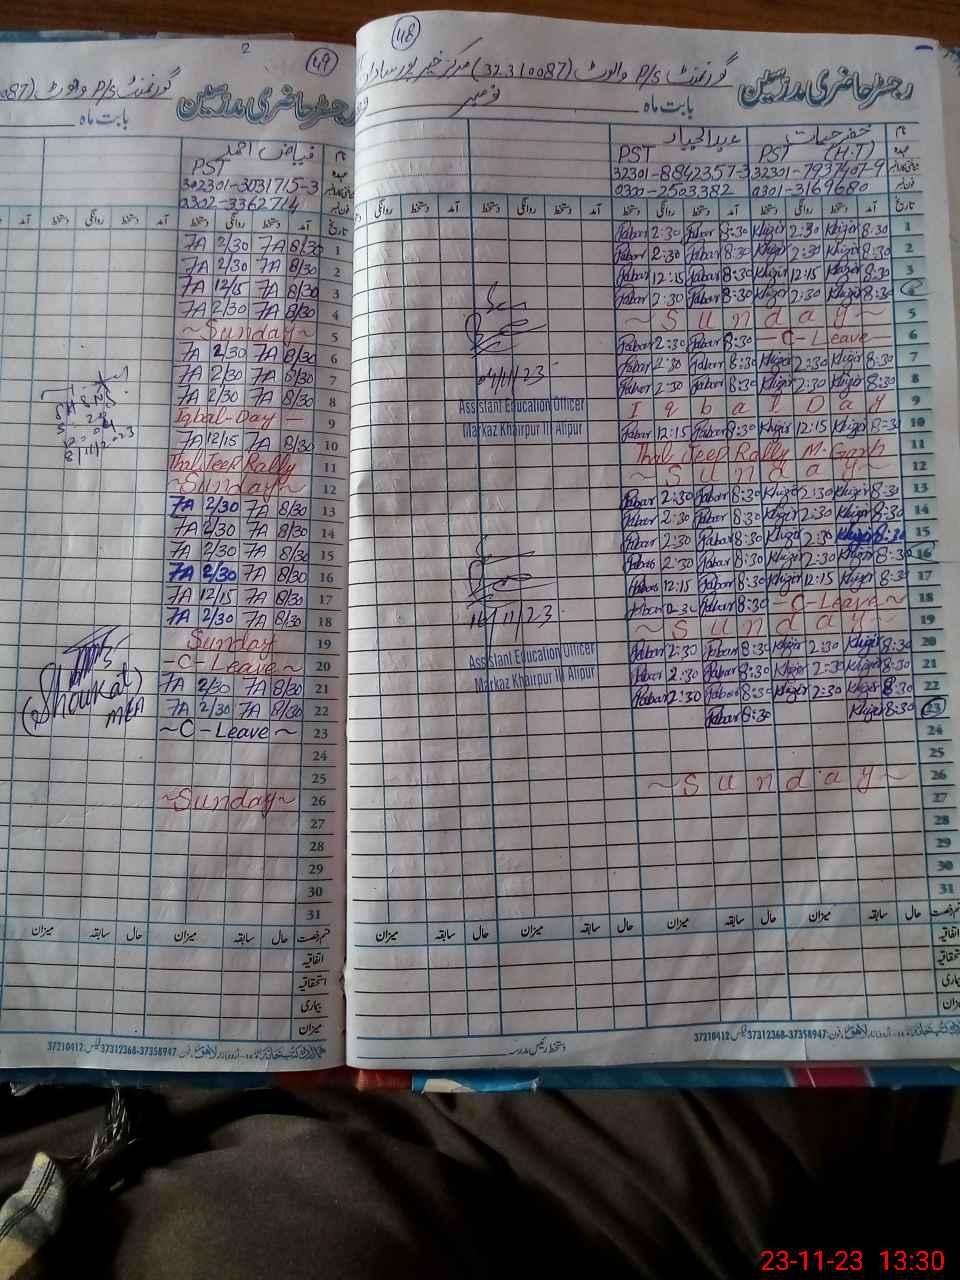 48
گورنمنٹ P/S والوٹ (32310087) مرکز خیر پور سادات
رجسٹر حاضری مدرسین
بابت ماہ نومبر
نام خضر حیات عبدالجبار
عہدہ PST (H.T) PST
32301-7937407-9 32301-8842357-3
0301-3169680 0300-2503382
تاریخ آمد دستخط روانگی دستخط آمد دستخط روانگی دستخط آمد دستخط روانگی دستخط
1 8:30 Khizir 2:30 Khizir 8:30 Jabar 2:30 Jabar
2 8:30 Khizir 2:30 Khizir 8:30 Jabar 2:30 Jabar
3 8:30 Khizir 12:15 Khizir 8:30 Jabar 12:15 Jabar
4 8:30 Khizir 2:30 Khizir 8:30 Jabar 2:30 Jabar
5 ~ Sunday ~
6 - C - Leave - 8:30 Jabar 2:30 Jabar
7 8:30 Khizir 2:30 Khizir 8:30 Jabar 2:30 Jabar
8 8:30 Khizir 2:30 Khizir 8:30 Jabar 2:30 Jabar
9 Iqbal Day
10 8:30 Khizir 12:15 Khizir 8:30 Jabar 12:15 Jabar
11 Thal Jeep Rally M. Garh
12 ~ Sunday ~
13 8:30 Khizir 2:30 Khizir 8:30 Jabar 2:30 Jabar
14 8:30 Khizir 2:30 Khizir 8:30 Jabar 2:30 Jabar
15 8:30 Khizir 2:30 Khizir 8:30 Jabar 2:30 Jabar
16 8:30 Khizir 2:30 Khizir 8:30 Jabar 2:30 Jabar
17 8:30 Khizir 12:15 Khizir 8:30 Jabar 12:15 Jabar
18 - C - Leave ~ 8:30 Jabar 2:30 Jabar
19 ~ Sunday ~
20 8:30 Khizir 2:30 Khizir 8:30 Jabar 2:30 Jabar
21 8:30 Khizir 2:30 Khizir 8:30 Jabar 2:30 Jabar
22 8:30 Khizir 2:30 Khizir 8:30 Jabar 2:30 Jabar
23 8:30 Khizir 8:30 Jabar
24
25
26 ~ Sunday ~
27
28
29
30
31
04/11/23
Assistant Education Officer
Markaz Khairpur III Alipur
16/11/23
Assistant Education Officer
Markaz Khairpur III Alipur
قسم رخصت حال سابقہ میزان حال سابقہ میزان حال سابقہ میزان
اتفاقیہ
استحقاقیہ
بیماری
میزان
دستخط رئیس مدرسہ
37210412 فیکس 37312368-37358947
2
49
گورنمنٹ P/S والوٹ
رجسٹر حاضری مدرسین
بابت ماہ
نام فیاض احمد
عہدہ PST
302301-3031715-3
0302-3362714
تاریخ آمد دستخط روانگی دستخط آمد دستخط روانگی
1 8/30 7A 2/30 7A
2 8/30 7A 2/30 7A
3 8/30 7A 12/15 7A
4 8/30 7A 2/30 7A
5 ~ Sunday ~
6 8/30 7A 2/30 7A
7 8/30 7A 2/30 7A
8 8/30 7A 2/30 7A
9 Iqbal-Day -
10 8/30 7A 12/15 7A
11 Thal Jeep Rally
12 ~ Sunday ~
13 8/30 7A 2/30 7A
14 8/30 7A 2/30 7A
15 8/30 7A 2/30 7A
16 8/30 7A 2/30 7A
17 8/30 7A 12/15 7A
18 8/30 7A 2/30 7A
19 Sunday
20 - C - Leave ~
21 8/30 7A 2/30 7A
22 8/30 7A 2/30 7A
23 ~ C - Leave ~
24
25
26 ~ Sunday ~
27
28
29
30
31
(Shoukat)
MEA
قسم رخصت حال سابقہ میزان حال سابقہ میزان
اتفاقیہ
استحقاقیہ
بیماری
میزان
37210412 فیکس 37312368-37358947
23-11-23 13:30